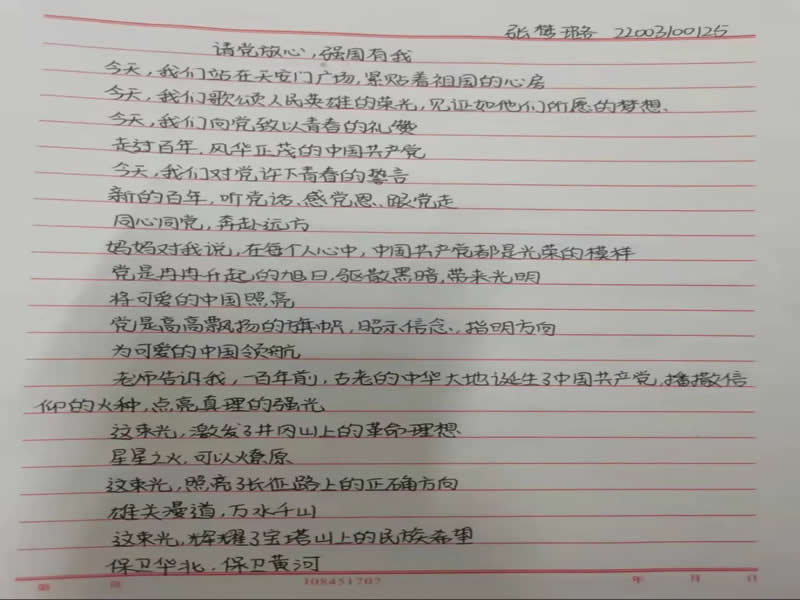 张梦璐 22003100125
请党放心,强国有我
今天,我们站在天安门广场,紧贴着祖国的心房
今天,我们歌颂人民英雄的荣光,见证如他们所愿的梦想.
今天,我们向党致以青春的礼赞
走过百年.风华正茂的中国共产党
今天,我们对党许下青春的誓言
新的百年,听党话、感党恩、跟党走
同心向党,奔赴远方
妈妈对我说,在每个人心中,中国共产党都是光荣的模样
党是冉冉升起的旭日,驱散黑暗,带来光明
将可爱的中国照亮
党是高高飘扬的旗帜,昭示信念、指明方向
为可爱的中国领航
老师告诉我,一百年前,古老的中华大地诞生了中国共产党,播撒信
仰的火种,点亮真理的强光
这束光,激发了井冈山上的革命理想
星星之火,可以燎原
这束光,照亮了长征路上的正确方向
雄关漫道,万水千山
这束光,辉耀了宝塔山上的民族希望
保卫华北.保卫黄河
第 页 108451707 年 月 日